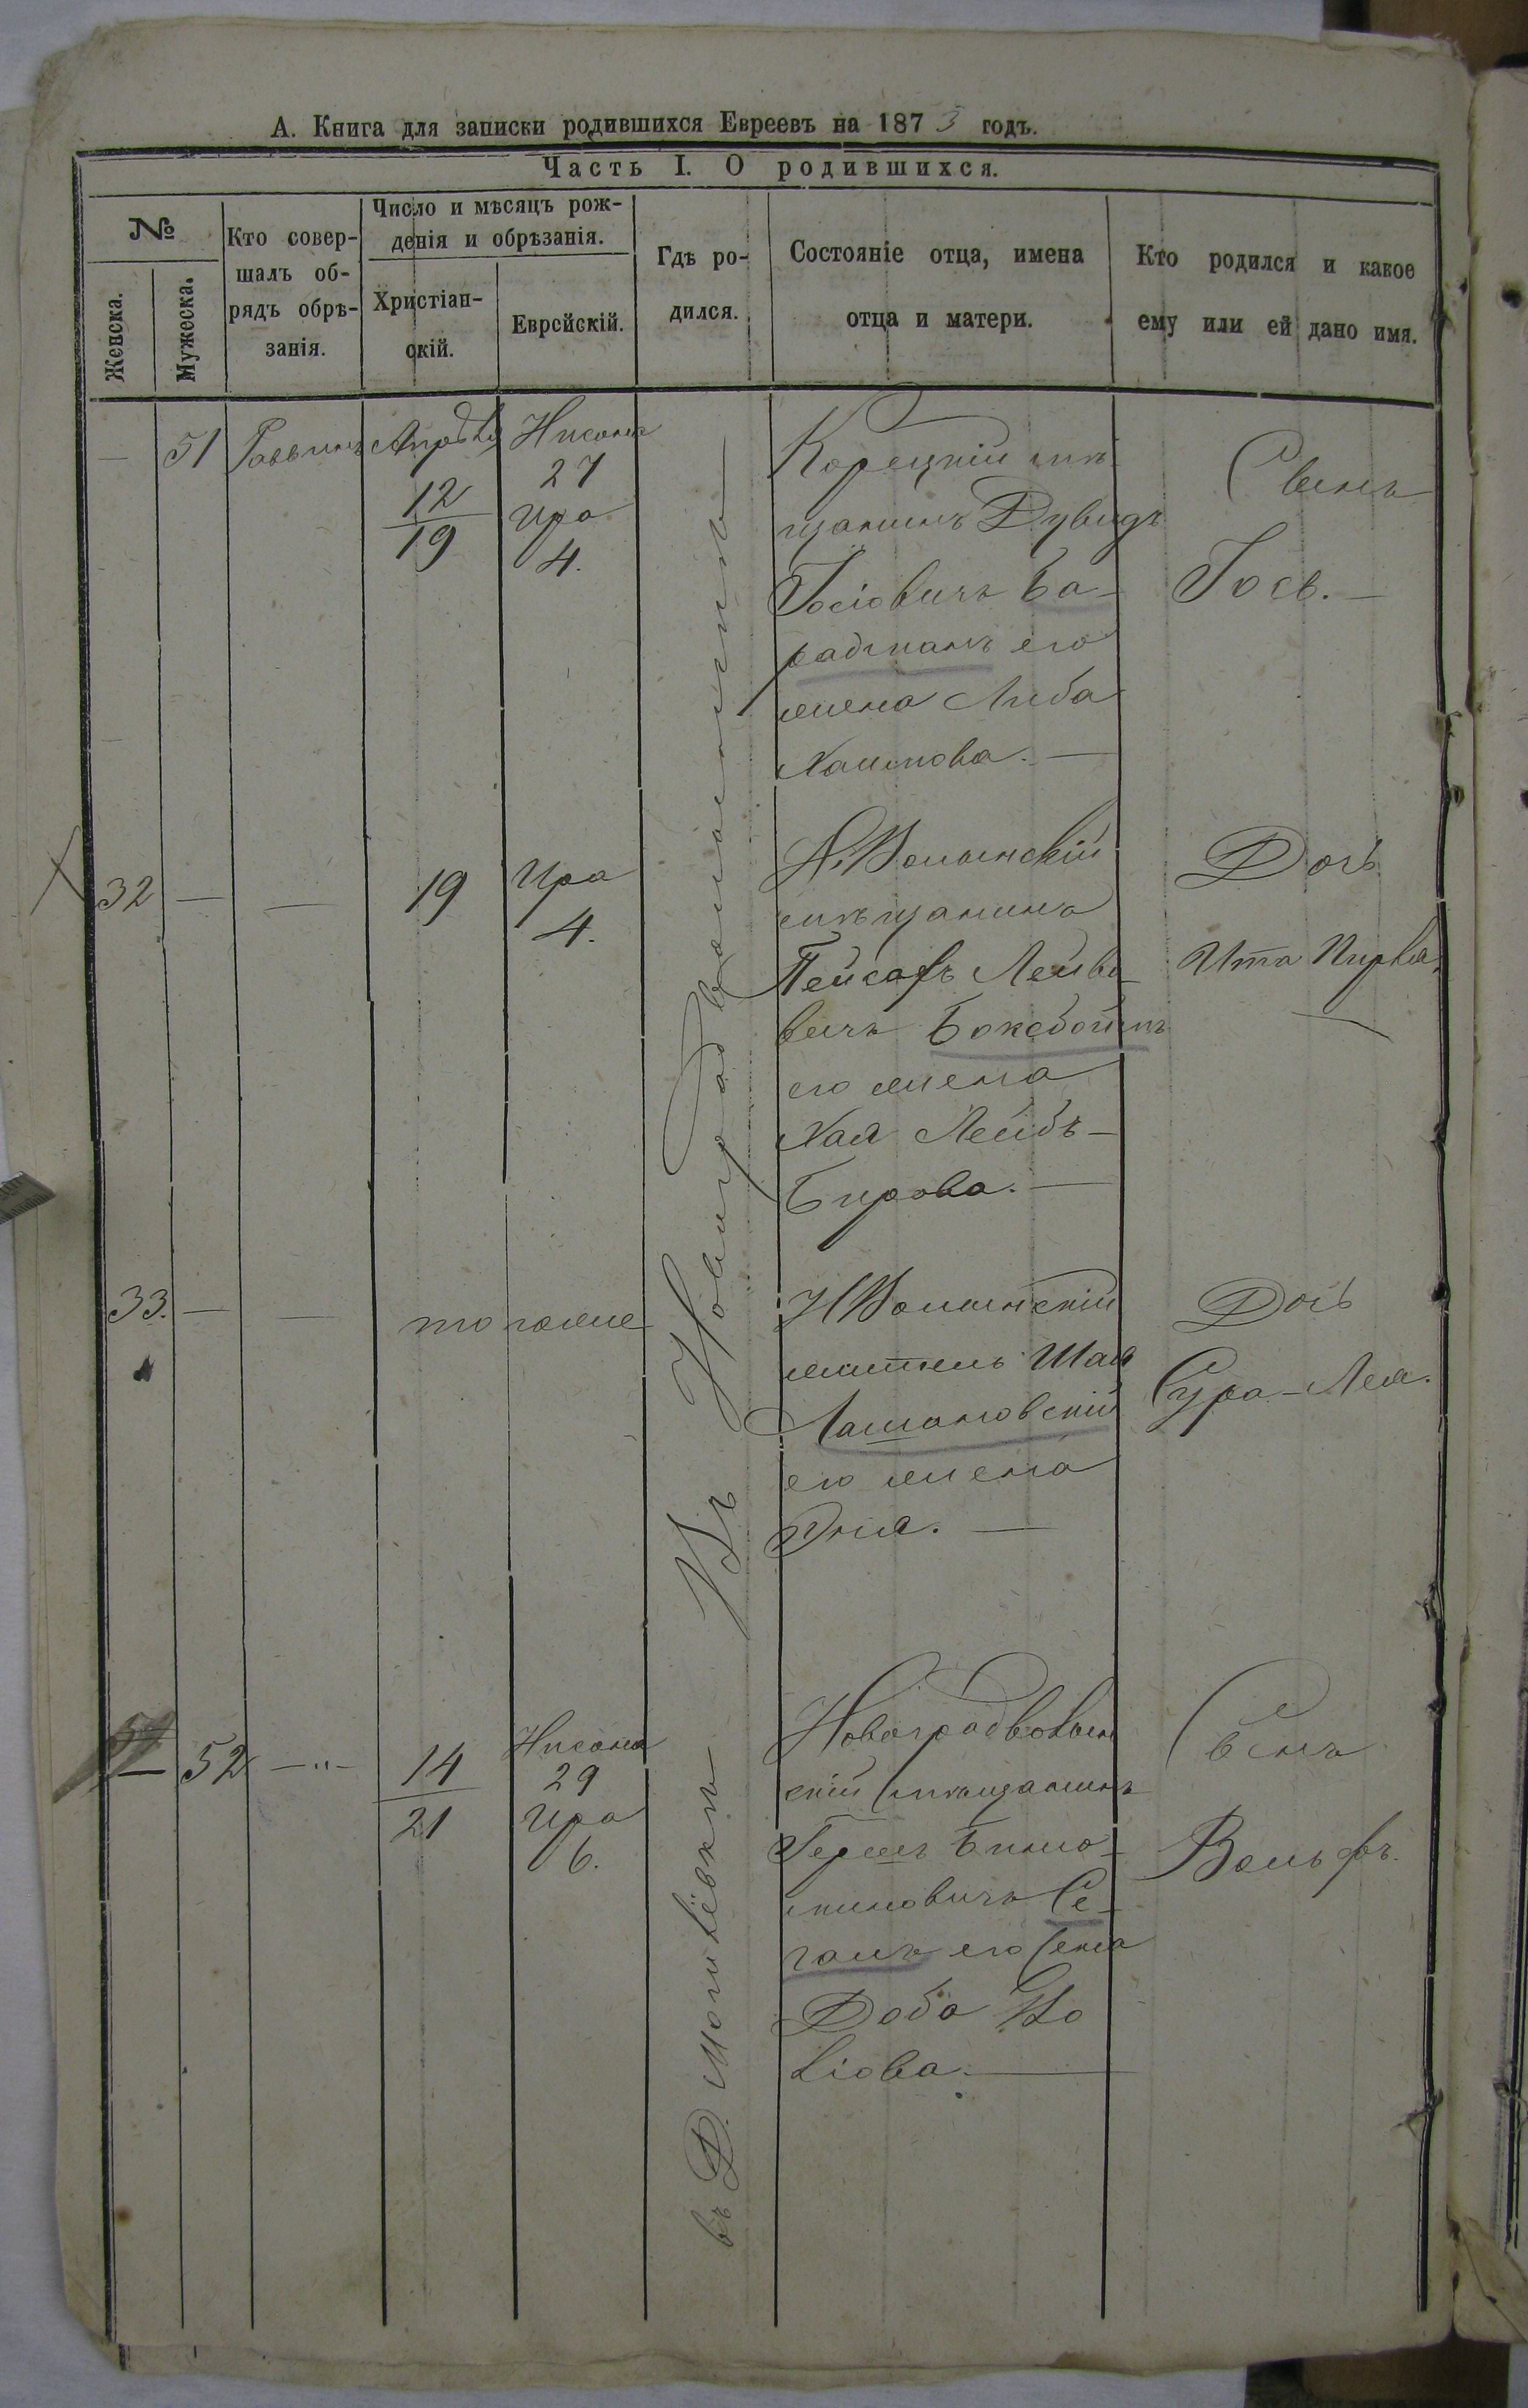 А. Книга для записки родившихся Евреевъ на 1873 годъ.
Часть I. О родившихся.
№
Женска.
Мужеска.
Кто совер-
шалъ об-
рядъ обрѣ-
занія.
Число и мѣсяцъ рож-
денія и обрѣзанія.
Христіан-
скій.
Еврейскій.
Гдѣ ро-
дился.
Состояніе отца, имена
отца и матери.
Кто родился и какое
ему или ей дано имя.
— 51 Раввинъ Апрѣля
12
19
Нисона
27
Ира
4.
Въ Новоградволынскѣ
Корецкій мѣ-
щанинъ Дувидъ
Іосіовичъ Ба-
радманъ его
жена Либа
Хаимова. —
Сынъ
Іось. —
32 — — 19
Ира
4.
Н.Волынскій
мѣщанинъ
Пейсахъ Лейбо-
вичъ Боксбоймъ
его жена
Хая Лейбъ-
Берова. —
Дочь
Ита Пирля.
33. — — тогоже
НВолынскій
житель Шая
Лашановскій
его жена
Эня. —
Дочь
Сура-Лея.
— 52 —"— 14
21
Нисона
29
Ира
6.
въ Д. Могилёвкѣ
Новоградволын
скій мѣщанинъ
Гершъ Бинio-
миновичъ Се-
галъ его жена
Доба
Сынъ
Вольфъ.